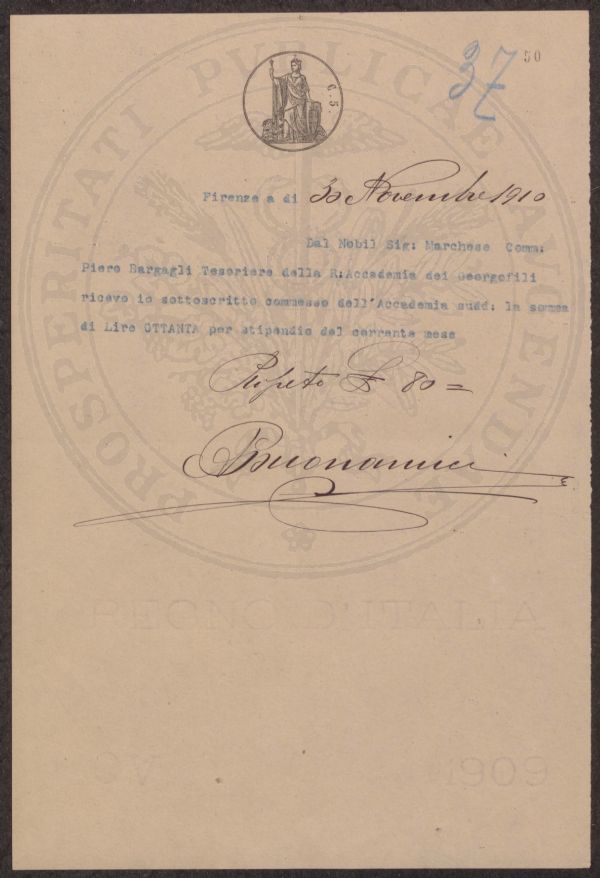 37 50
C. 5.
PROSPERITATI PUBLICAE AUGENDAE
Firenze a di 30 Novembre 1910
Dal Nobil Sig: Marchese Comm:
Piero Bargagli Tesoriere della R:Accademia dei Georgofili
ricevo io sottoscritto commesso dell'Accademia sudd: la somma
di Lire OTTANTA per stipendio del corrente mese
Ripeto £ 80=
Buonamici
REGNO D'ITALIA
1909